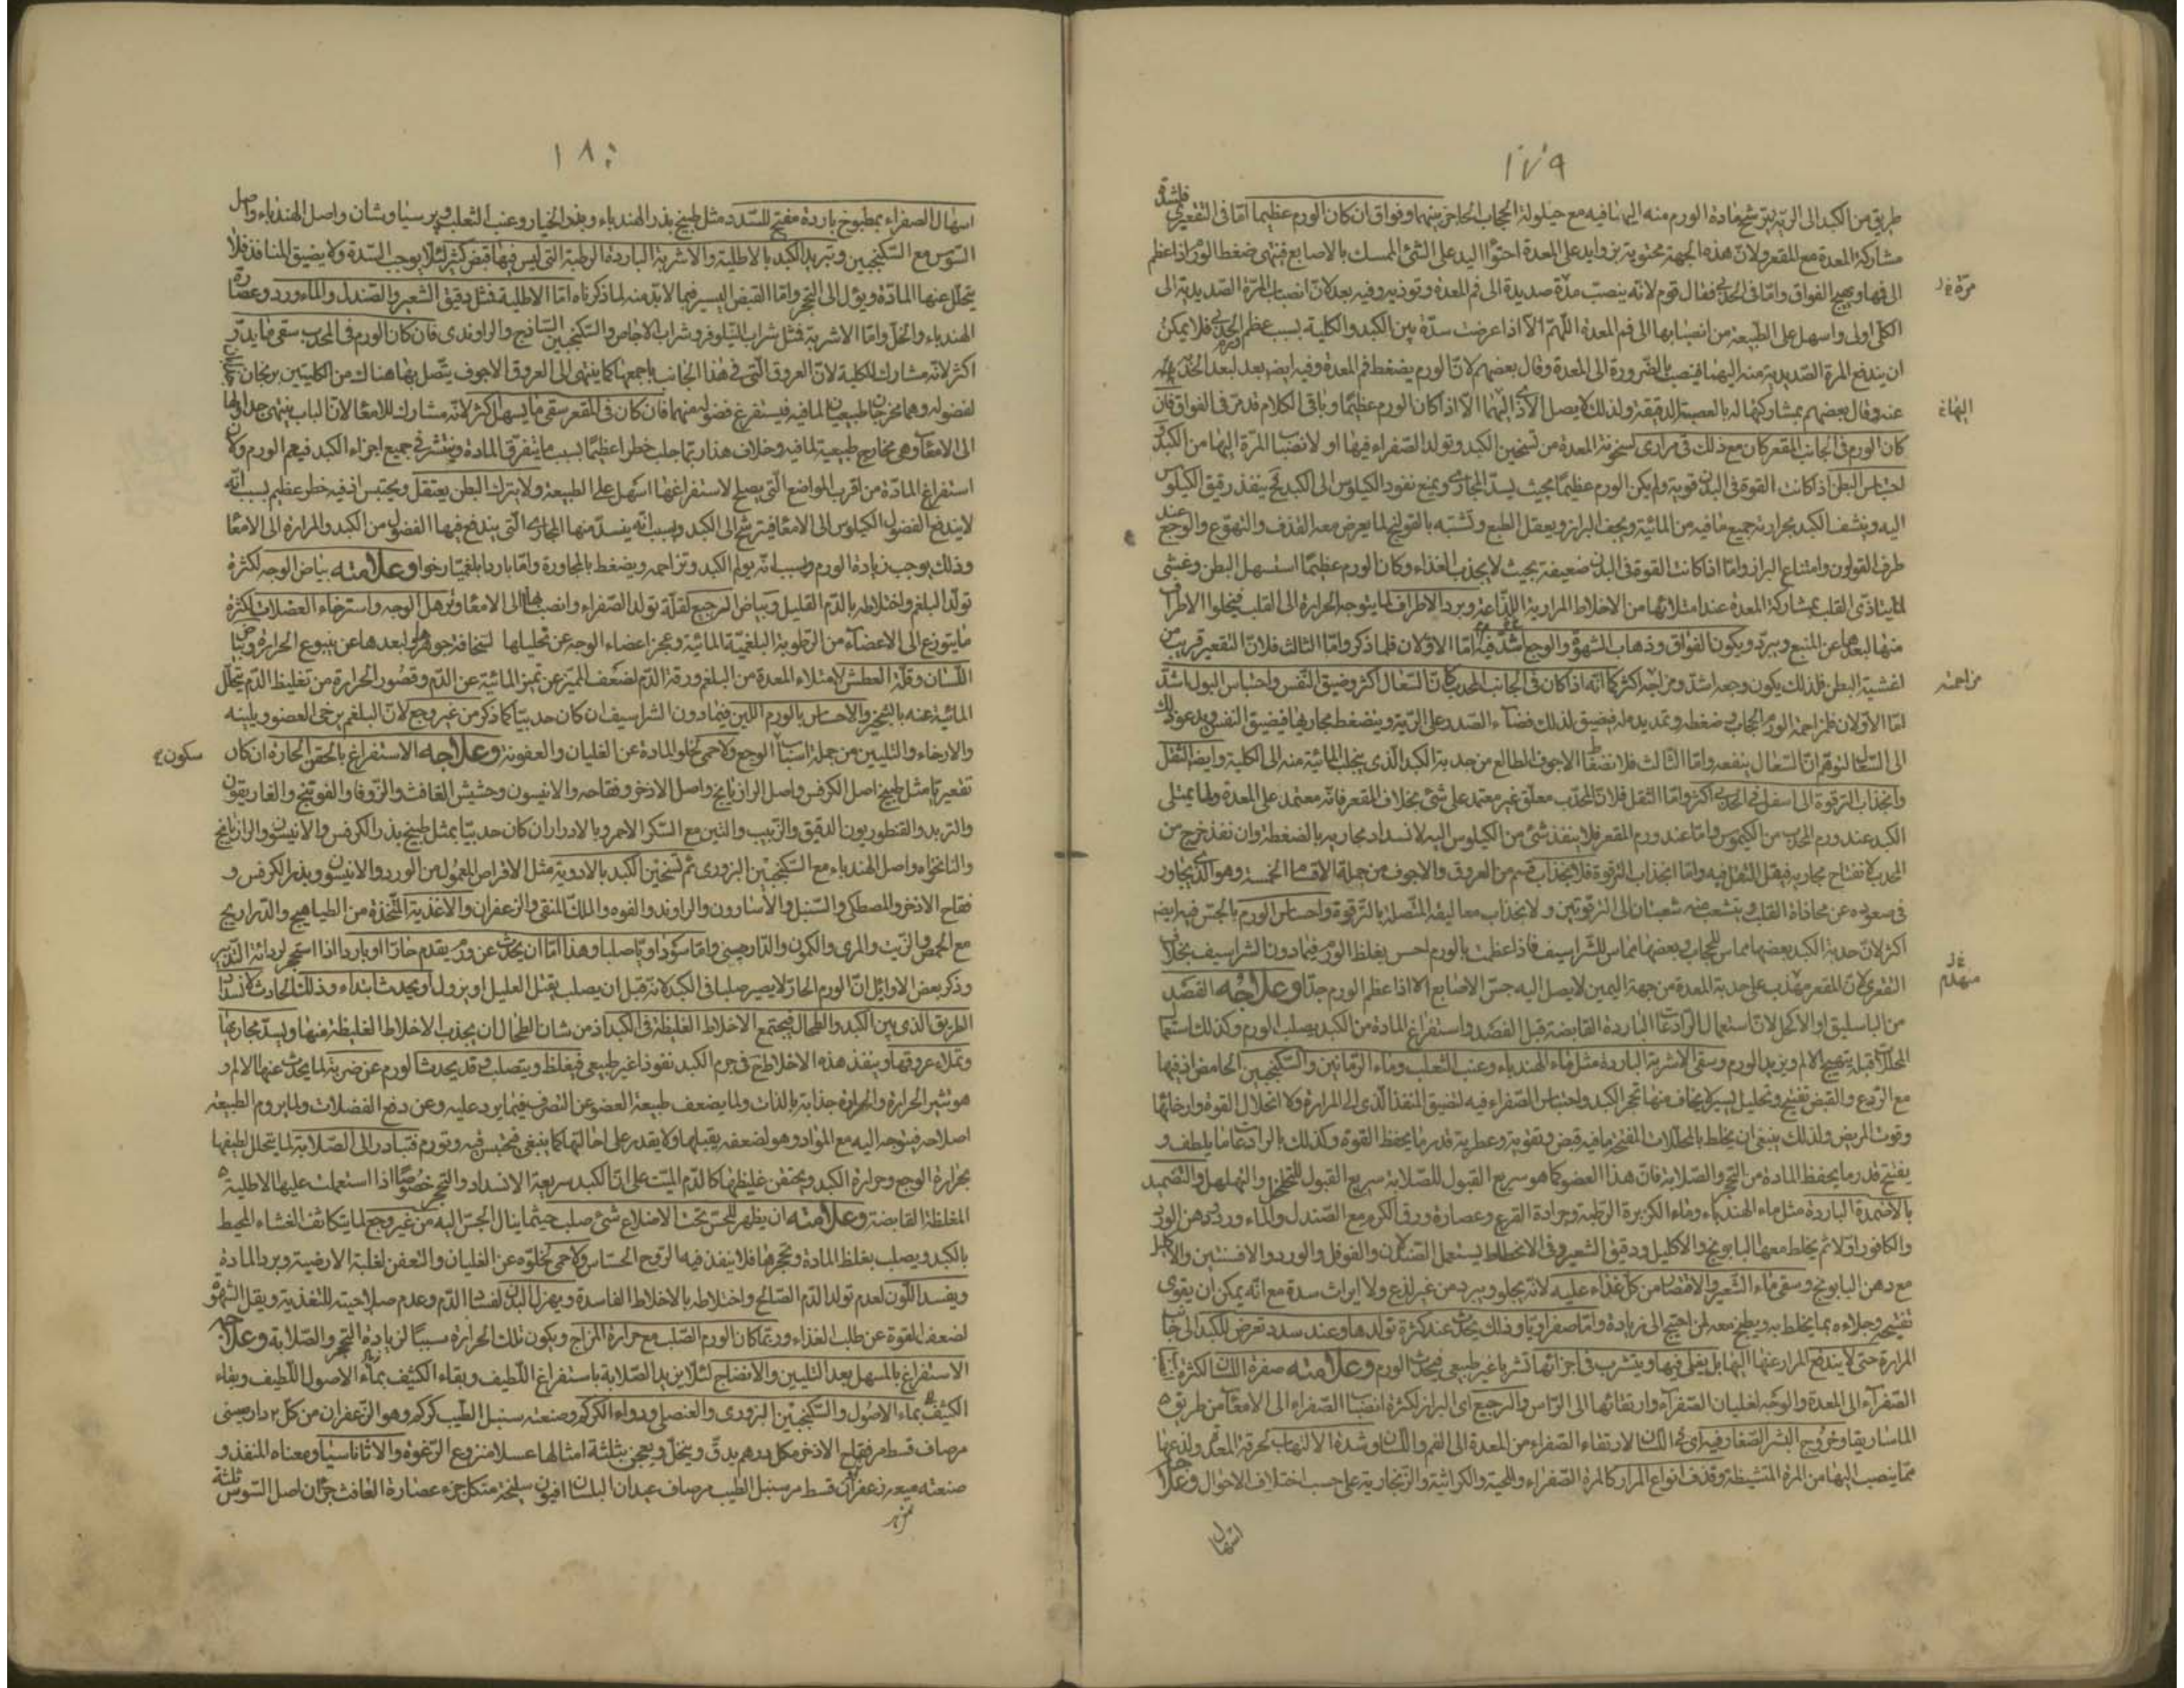 ١٧٩
طريق من الكبد الى الرية يترشح مادة الورم منه اليها فيه مع حيلولة الحجاب الحاجز بينهما وفواق ان كان الورم عظيما اما فى التقعيرى فلشدة
مشاركة المعدة مع المقعر ولان هذه الجهة محتوية بزوايد على المعدة احتواء اليد على الشئ الممسك بالاصابع فينتهى ضغط الورم اذا عظم
الى فمها ويهيج الفواق واما فى الحدبى فقال قوم لانه ينصب مدة صديدة الى فم المعدة وتوذيه وفيه بعد لان انصباب المرة الصديدية الى
الكلى اولى واسهل على الطبيعة من انصبابها الى فم المعدة اللهم الا اذا عرضت سدة بين الكبد والكلية بسبب عظم الحدبى فلا يمكن
ان يندفع المرة الصديدية منه اليها فينصب بالضرورة الى المعدة وقال بعضهم لان الورم يضغط فم المعدة وفيه ايضا بعد لبعد الحدبة
عنه وقال بعضهم بمشاركتها له بالعصبة الدقيقة ولذلك لا يصل الاذى اليها الا اذا كان الورم عظيما وباقى الكلام قد مر فى الفواق فان
كان الورم فى الجانب المقعر كان مع ذلك قئ مرارى لسخونة المعدة من تسخين الكبد وتولد الصفراء فيها او لانصباب المرة اليها من الكبد و
احتباس البطن اذ كانت القوة فى البدن قوية ولم يكن الورم عظيما بحيث يسد المجارى ويمنع نفوذ الكيلوس الى الكبد فح ينفذ رقيق الكيلوس
اليه وينشف الكبد بحرارته جميع ما فيه من المائية ويجف البراز ويعقل الطبع وتشتبه بالقولنج لما يعرض معه القذف والتهوع والوجع عند
طرف القولون وامتناع البراز واما اذا كانت القوة فى البدن ضعيفة بحيث لا يجذب الغذاء وكان الورم عظيما استسهل البطن وغشى
لما يتاذى القلب بمشاركة المعدة عند امتلائها من الاخلاط المرارية اللذاعة وبرد الاطراف لما يتوجه الحرارة الى القلب فيخلوا الاطراف
منها لبعدها عن المنبع وتبرد ويكون الفواق وذهاب الشهوة والوجع اشد فيه اما الاولان فلما ذكر واما الثالث فلان التقعير قريب من
اغشية البطن فلذلك يكون وجعه اشد ومزاحمه اكثر كما انه اذا كان فى الجانب الحدب كان السعال اكثر وضيق النفس واحتباس البول اشد
اما الاولان فلمزاحمة الورم الحجاب وضغطه وتمديده له فيضيق لذلك فضاء الصدر على الرية وينضغط مجاريها فيضيق النفس ويدعو ذلك
الى السعال لتوهم ان السعال ينفعه واما الثالث فلانضغاط الاجوف الطالع من حدبة الكبد الذى ينجلب المائية منه الى الكلية وايضا الثقل
وانجذاب الترقوة الى اسفل فى الحدبى اكثر واما الثقل فلان المحدب معلق غير معتمد على شئ بخلاف المقعر فانه معتمد على المعدة ولما يمتلى
الكبد عند ورم المحدب من الكيموس واما عند ورم المقعر فلا ينفذ شئ من الكيلوس اليه لانسداد مجاريه بالضغطة وان نفذ خرج من
المحدب لانفتاح مجاريه فيقل الثقل فيه واما انجذاب الترقوة فلانجذاب قسم من العروق والاجوف من جملة الاقسام الخمسة وهو الذى يجاور
فى صعوده عن محاذاة القلب ويتشعب منه شعبتان الى الترقوتين ولانجذاب معاليقه المتصلة بالترقوة واحساس الورم بالجس فيه ايضا
اكثر لان حدبة الكبد بعضها مماس للحجاب وبعضها مماس للشراسيف فاذا عظمت بالورم احس بغلظ الورم فيما دون الشراسيف بخلاف
التقعرى لان المقعر مهندم على حدبة المعدة من جهة اليمين لا يصل اليه جس الاصابع الا اذا عظم الورم جدا وعلاجه الفصد
من الباسليق او الاكحل لان استعمال الرادعات الباردة القابضة قبل الفصد واستفراغ المادة من الكبد يصلب الورم وكذلك استعمال
المحللات قبله يهيج الالم ويزيد الورم وسقى الاشربة الباردة مثل ماء الهندباء وعنب الثعلب وماء الرمانين والسكنجبين الحامض اذ فيها
مع الردع والقبض تفتيح وتحليل يسير لا يخاف منها تحجر الكبد واحتباس الصفراء فيه لتضيق المنفذ الذى الى المرارة ولا انحلال القوة وارخائها
وقوت المريض ولذلك ينبغى ان يخلط بالمحللات المفتحة ما فيه قبض وتقوية وعطرية قدر ما يحفظ القوة وكذلك بالرادعات ما يلطف و
يفتح قدر ما يحفظ المادة من التحجر والصلابة فان هذا العضو كما هو سريع القبول للصلابة سريع القبول للتخلخل والتهلهل والتضميد
بالاضمدة الباردة مثل ماء الهندباء وماء الكزبرة الرطبة وجرادة القرع وعصارة ورق الكرم مع الصندل والماء ورد ودهن الورد
والكافور اولا ثم يخلط معها البابونج والاكليل ودقيق الشعير وفى الانحطاط يستعمل الصندلان والفوفل والورد والافسنتين والاكليل
مع دهن البابونج وسقى ماء الشعير والاقتصار من كل غذاء عليه لانه يجلو ويبرد من غير لذع ولا ايراث سدة مع انه يمكن ان يقوى
تفتيحه وجلاءه بما يخلط به ويطبخ معه لمن احتيج الى زيادة واما صفراويا وذلك يحدث عند كثرة تولدها وعند سدد تعرض للكبد الى جانب
المرارة حتى لا يندفع المرار عنها اليها بل يغلى فيها ويتشرب فى اجزائها تشربا غير طبيعى فيحدث الورم وعلامته صفرة اللسان لكثرة
الصفراء الى المعدة والوجه لغليان الصفراء وارتقائها الى الراس والرجيع اى البراز لكثرة انصباب الصفراء الى الامعاء من طريق
الماساريقا وخروج البثر الصغار فيه اى فى اللسان لارتقاء الصفراء من المعدة الى الفم واللسان وشدة الالتهاب لحرقة المعدة ولذعها
مما ينصب اليها من المرة المتشيطة وقذف انواع المرار كالمرة الصفراء والمحية والكراثية والزنجارية على حسب اختلاف الاحوال وعلاجه
اسهال
مزاحمته
مهندم
١٨٠
اسهال الصفراء بمطبوخ باردة مفتح للسدد مثل طبيخ بذر الهندباء وبذر الخيار وعنب الثعلب وپرسياوشان واصل الهندباء واصل
السوس مع السكنجبين وتبريد الكبد بالاطلية والاشربة الباردة الرطبة التى ليس فيها قبض كثير لئلا يوجب السدة ولا يضيق المنافذ فلا
يتحلل عنها المادة ويؤل الى التحجر واما القبض اليسير فيما لا بد منه لما ذكرناه اما الاطلية فمثل دقيق الشعير والصندل والماء ورد وعصارة
الهندباء والخل واما الاشربة فمثل شراب النيلوفر وشراب الاجاص والسكنجبين الساذج والراوندى فان كان الورم فى المحدب سقى ما يدر
اكثر لانه مشارك للكلية لان العروق التى فى هذا الجانب باجمعها كما ينتهى الى العروق الاجوف يتصل بها هناك من الكليتين بربخان
لفضوله وهما مخرجان طبيعيان لما فيه فيستفرغ فضوله منهما فان كان فى المقعر سقى ما يسهل اكثر لانه مشارك للامعاء لان الباب ينتهى جداولها
الى الامعاء وهى مخارج طبيعية لما فيه وخلاف هذا ربما جلب خطرا عظيما بسبب ما يتفرق المادة وينتشر فى جميع اجزاء الكبد فيعم الورم ولان
استفراغ المادة من اقرب المواضع التى يصلح لاستفراغها اسهل على الطبيعة ولا يترك البطن يعتقل ويحتبس اذ فيه خطر عظيم بسبب انه
لا يندفع الفضول الكيلوس الى الامعاء فيترشح الى الكبد وبسبب انه ينسد منها المجارى التى يندفع فيها الفضول من الكبد والمرارة الى الامعاء
وذلك يوجب زيادة الورم وبسبب انه يولم الكبد وتزاحمه ويضغط بالمجاورة واما باردا بلغميا رخوا وعلامته بياض الوجه لكثرة
تولد البلغم واختلاطه بالدم القليل وبياض الرجيع لقلة تولد الصفراء وانصبابها الى الامعاء وترهل الوجه واسترخاء العضلات لكثرة
ما يتوزع الى الاعضاء من الرطوبة البلغمية المائية وعجز اعضاء الوجه عن تحليلها لسخافة جوهرها ولبعدها عن ينبوع الحرارة وبياض
اللسان وقلة العطش لامتلاء المعدة من البلغم ورقة الدم لضعف المميزة عن تميز المائية عن الدم وقصور الحرارة من تغليظ الدم بتحلل
المائية عنه بالتبخير والاحساس بالورم اللين فيما دون الشراسيف ان كان حدبيا كما ذكر من غير وجع لان البلغم يرخى العضو ويلينه
والارخاء والتليين من جملة اسباب الوجع ولا حمى لخلو المادة عن الغليان والعفونة وعلاجه الاستفراغ بالحقن الحارة ان كان
تقعيريا مثل طبيخ اصل الكرفس واصل الرازيانج واصل الاذخر وفقاحه والانيسون وحشيش الغافث والزوفا والفوتنج والغاريقون
والتربد والقنطوريون الدقيق والزبيب والتين مع السكر الاحمر وبالادرار ان كان حدبيا بمثل طبيخ بذر الكرفس والانيسون والرازيانج
والنانخواه واصل الهندباء مع السكنجبين البزورى ثم تسخين الكبد بالادوية مثل الاقراص المعمول من الورد والانيسون وبذر الكرفس و
فقاح الاذخر والمصطكى والسنبل والاسارون والراوند والفوه واللك المنقى والزعفران والاغذية المتخذة من الطياهيج والدراريج
مع الحمص والزيت والمرى والكمون والدارچينى واما سوداويا صلبا وهذا اما ان يحدث عن ورم يقدم حارا او باردا اذا استحجر لردائة التدبير
وذكر بعض الاوايل ان الورم الحار لا يصير صلبا فى الكبد لانه قبل ان يصلب يقتل العليل او يزول او يحدث ابتداء وذلك الحادث لانسداد
الطريق الذى بين الكبد والطحال فيجتمع الاخلاط الغليظة فى الكبد اذ من شان الطحال ان يجذب الاخلاط الغليظة منها ويسد مجاريها
وتملاء عروقها وينفذ هذه الاخلاط فى جرم الكبد نفوذا غير طبيعى فيغلظ ويتصلب وقد يحدث الورم عن ضربة لما يحدث عنها الالم و
هو تثير الحرارة والحرارة جذابة بالذات ولما يضعف طبيعة العضو عن التصرف فيما يرد عليه وعن دفع الفضلات ولما يروم الطبيعة
اصلاحه فيتوجه اليه مع المواد وهو لضعفه يقبلها ولا يقدر على احالتها كما ينبغى فيحتبس فيه وتورم فتبادر الى الصلابة لما يتحلل لطيفها
بحرارة الوجع وحرارة الكبد ويحتقن غليظها كالدم الميت على ان الكبد سريعة الانسداد والتحجر خصوصا اذا استعملت عليها الاطلية
المغلظة القابضة وعلامته ان يظهر للجس تحت الاضلاع شئ صلب حيثما ينال الجس اليه من غير وجع لما يتكاثف الغشاء المحيط
بالكبد ويصلب بغلظ المادة وتحجرها فلا ينفذ فيه الروح الحساس ولا حمى لخلوه عن الغليان والتعفن لغلبة الارضية وبرد المادة
ويفسد اللون لعدم تولد الدم الصالح واختلاطه بالاخلاط الفاسدة ويهزل البدن لفساد الدم وعدم صلاحيته للتغذية ويقل الشهوة
لضعف القوة عن طلب الغذاء وربما كان الورم الصلب مع حرارة المزاج ويكون تلك الحرارة سببا لزيادة التحجر والصلابة وعلاجه
الاستفراغ بالمسهل بعد التليين والانضاج لئلا يزيد الصلابة باستفراغ اللطيف وبقاء الكثيف بماء الاصول اللطيف وبقاء
الكثيف بماء الاصول والسكنجبين البزورى والعنصلى ودواء الكركم وصنعته سنبل الطيب كركم وهو الزعفران من كل ٢ دارچينى
مر صاف قسط مر فقاح الاذخر من كل درهم يدق وينخل ويعجن بثلثة امثالها عسلا منزوع الرغوة والاثاناسيا ومعناه المنقذ و
صنعته ميعه زعفران قسط مر سنبل الطيب مر صاف عيدان البلسان افيون سليخة من كل جزء عصارة الغافث جزان اصل السوس ثلثة
سكون